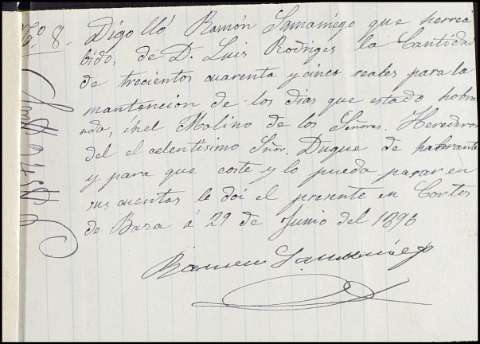 Nº 8. Digo lló Ramón Samaniego que herreci
bido, de D. Luis Rodriges la Cantida
de trecientos cuarenta y cinco reales para la
mantencion de los dias que estado
inel Molino de los Señores. Herederos
del el celentisimo Sñor. Duque de
y para que coste y lo pueda pasar en
sus cuentas le doi el presente en Cortes
de Baza á 29 de Junio del 1896
Ramon Samaniego